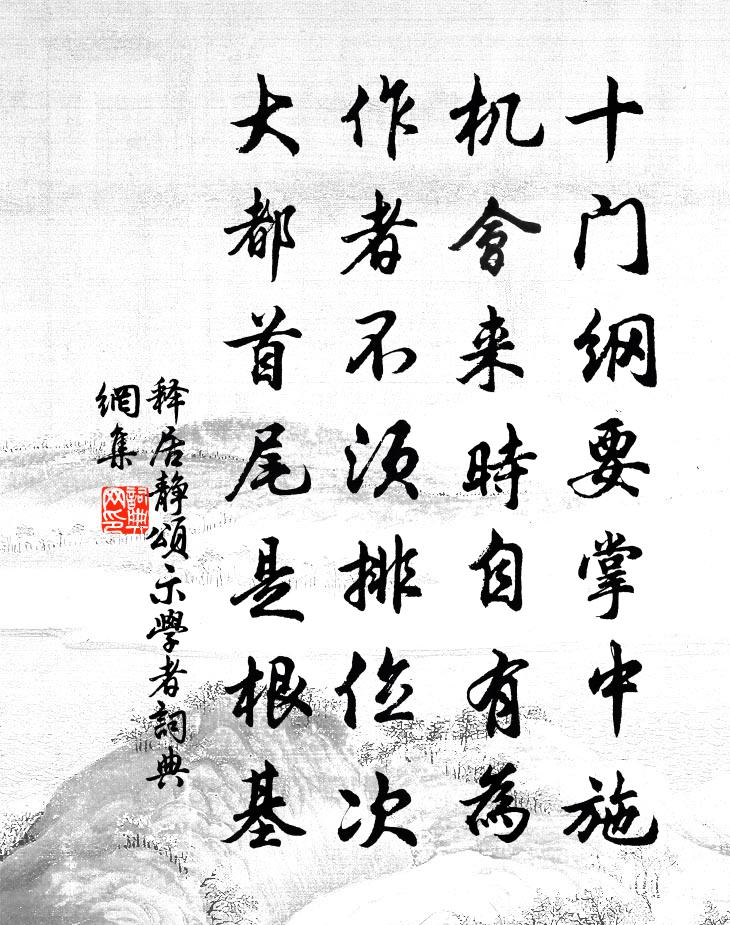 十门纲要掌中施
机會来時自有為
作者不须排位次
大都首尾是根基
释居静頌示學者詞典
網集
詞典
网印